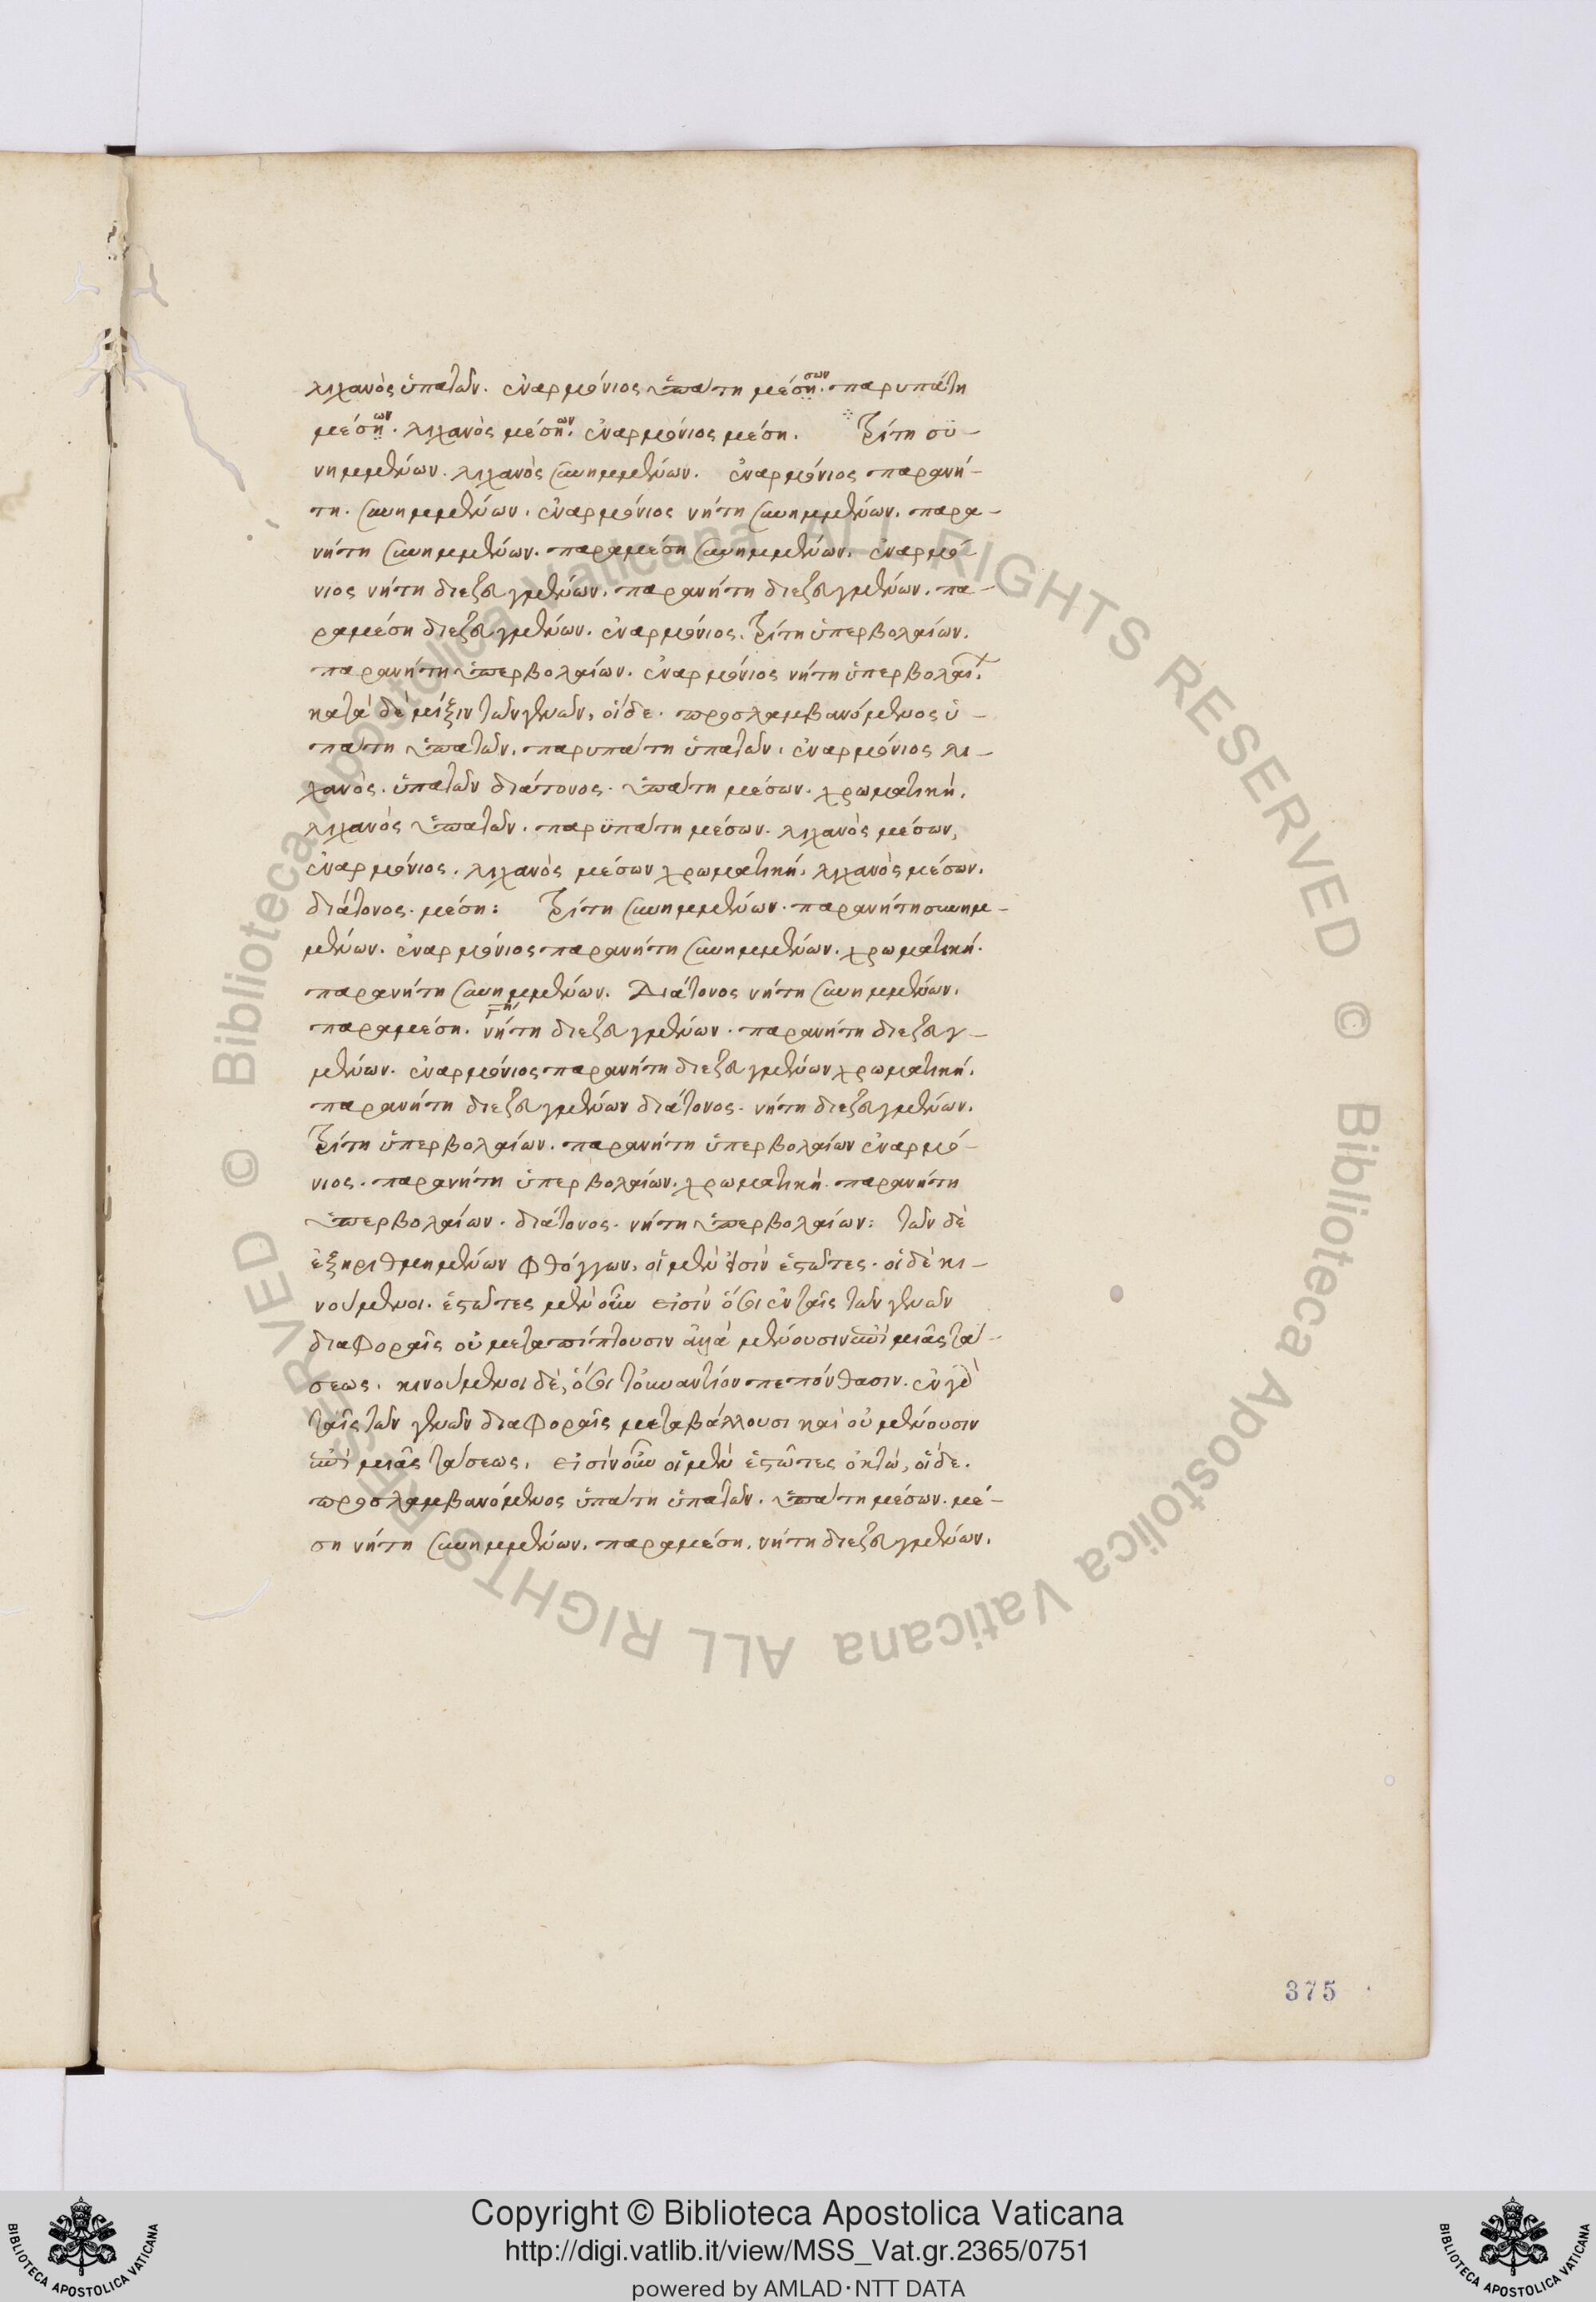 λιχανὸς ὑπατῶν. ἐναρμόνιος ὑπάτη μέση·σων παρυπάτη
μέσηων. λιχανὸς μέσηων. ἐναρμόνιος μέση. Τρίτη συ-
νημμένων. λιχανὸς συνημμένων. ἐναρμόνιος παρανή-
τη. συνημμένων. ἐναρμόνιος νήτη συνημμένων. παρα-
νήτη συνημμένων. παραμέση συνημμένων. ἐναρμό-
νιος νήτη διεζευγμένων. παρανήτη διεζευγμένων. πα-
ραμέση διεζευγμένων. ἐναρμόνιος. Τρίτη ὑπερβολαίων.
παρανήτη ὑπερβολαίων. ἐναρμόνιος νήτη ὑπερβολαί.
κατὰ δὲ μίξιν τῶν γενῶν, οἵδε. προσλαμβανόμενος ὑ-
πάτη ὑπατῶν. παρυπάτη ὑπατῶν. ἐναρμόνιος λι-
χανὸς. ὑπατῶν διάτονος. ὑπάτη μέσων. χρωματική.
λιχανὸς ὑπατῶν. παρϋπάτη μέσων. λιχανὸς μέσων,
ἐναρμόνιος. λιχανὸς μέσων χρωματική. λιχανὸς μέσων.
διάτονος. μέση: Τρίτη συνημμένων. παρανήτη συνημ-
μένων. ἐναρμόνιος παρανήτη συνημμένων. χρωματική.
παρανήτη συνημμένων. Διάτονος νήτη συνημμένων.
παραμέση. νήτη διεζευγμένων. παρανήτη διεζευγ-
μένων. ἐναρμόνιος παρανήτη διεζευγμένων χρωματική.
παρανήτη διεζευγμένων διάτονος. νήτη διεζευγμένων.
Τρίτη ὑπερβολαίων. παρανήτη ὑπερβολαίων ἐναρμό-
νιος. παρανήτη ὑπερβολαίων. χρωματική. παρανήτη
ὑπερβολαίων. διάτονος. νήτη ὑπερβολαίων: τῶν δὲ
ἐξηριθμημένων φθόγγων, οἱ μέν εἰσιν ἑστῶτες. οἱ δὲ κι-
νούμενοι. ἑστῶτες μὲν οὖν εἰσὶν ὅσοι ἐν ταῖς τῶν γενῶν
διαφοραῖς οὐ μεταπίπτουσιν ἀλλὰ μένουσιν ἐπὶ μιᾶς τά-
σεως. κινούμενοι δὲ, ὅσοι τὸ ἐναντίον πεπόνθασιν. ἐν γὰρ
ταῖς τῶν γενῶν διαφοραῖς μεταβάλλουσι καὶ οὐ μένουσιν
ἐπὶ μιᾶς τάσεως. εἰσὶν οὖν οἱ μὲν ἑστῶτες ὀκτώ, οἵδε.
προσλαμβανόμενος ὑπάτη ὑπατῶν. ὑπάτη μέσων. μέ-
ση νήτη συνημμένων. παραμέση. νήτη διεζευγμένων.
375
© Biblioteca Apostolica Vaticana ALL RIGHTS RESERVED © Biblioteca Apostolica Vaticana ALL RIGHTS RESERVED
BIBLIOTECA APOSTOLICA VATICANA
Copyright © Biblioteca Apostolica Vaticana
http://digi.vatlib.it/view/MSS_Vat.gr.2365/0751
powered by AMLAD·NTT DATA
BIBLIOTECA APOSTOLICA VATICANA